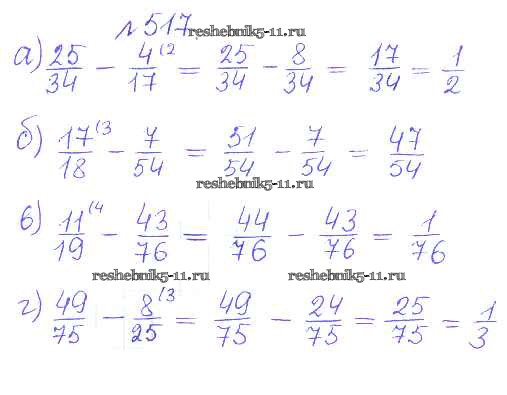 №517
reshebnik5-11.ru
а) 25/34 − 4(2/17 = 25/34 − 8/34 = 17/34 = 1/2
б) 17(3/18 − 7/54 = 51/54 − 7/54 = 47/54
reshebnik5-11.ru
в) 11(4/19 − 43/76 = 44/76 − 43/76 = 1/76
reshebnik5-11.ru reshebnik5-11.ru
г) 49/75 − 8(3/25 = 49/75 − 24/75 = 25/75 = 1/3